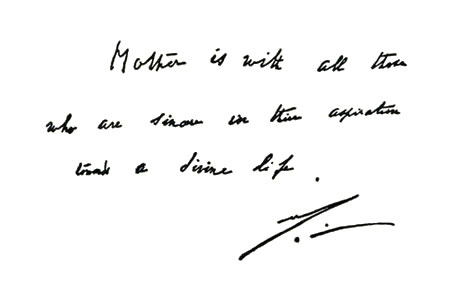 Mother is with all those
who are sincere in their aspiration
towards a divine life.